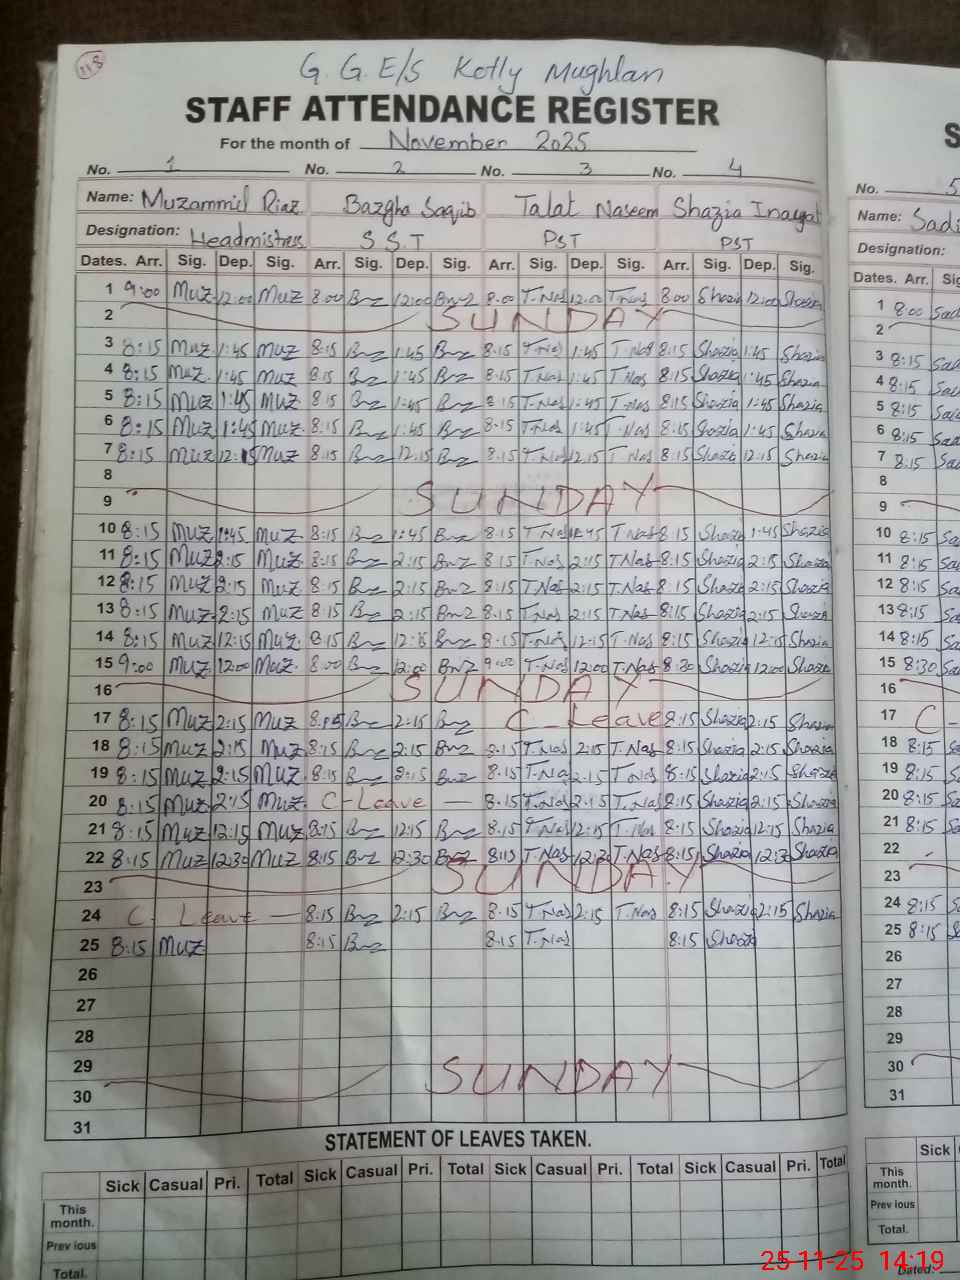 118
G. G. E/S Kotly Mughlan
STAFF ATTENDANCE REGISTER
For the month of November 2025
No. 1 No. 2 No. 3 No. 4
Name: Muzammil Riaz Bazgha Saqib Talat Naseem Shazia Inayat
Designation: Headmistress S.S.T PST PST
Dates. Arr. Sig. Dep. Sig. Arr. Sig. Dep. Sig. Arr. Sig. Dep. Sig. Arr. Sig. Dep. Sig.
1 9:00 Muz 12:00 Muz 8:00 Bnz 12:00 Bnz 8:00 T.Nas 12:00 T.Nas 8:00 Shazia 12:00 Shazia
2 SUNDAY
3 8:15 Muz 1:45 Muz 8:15 Bnz 1:45 Bnz 8:15 T.Nas 1:45 T.Nas 8:15 Shazia 1:45 Shazia
4 8:15 Muz. 1:45 Muz 8:15 Bnz 1:45 Bnz 8:15 T.Nas 1:45 T.Nas 8:15 Shazia 1:45 Shazia
5 8:15 Muz 1:45 Muz. 8:15 Bnz 1:45 Bnz 8:15 T.Nas 1:45 T.Nas 8:15 Shazia 1:45 Shazia
6 8:15 Muz 1:45 Muz. 8:15 Bnz 1:45 Bnz 8:15 T.Nas 1:45 T.Nas 8:15 Shazia 1:45 Shazia
7 8:15 Muz 12:15 Muz 8:15 Bnz 12:15 Bnz 8:15 T.Nas 12:15 T.Nas 8:15 Shazia 12:15 Shazia
8
9 SUNDAY
10 8:15 Muz 1:45 Muz 8:15 Bnz 1:45 Bnz 8:15 T.Nas 1:45 T.Nas 8:15 Shazia 1:45 Shazia
11 8:15 Muz 2:15 Muz. 8:15 Bnz 2:15 Bnz 8:15 T.Nas 2:15 T.Nas 8:15 Shazia 2:15 Shazia
12 8:15 Muz 2:15 Muz. 8:15 Bnz 2:15 Bnz 8:15 T.Nas 2:15 T.Nas 8:15 Shazia 2:15 Shazia
13 8:15 Muz 2:15 Muz 8:15 Bnz 2:15 Bnz 8:15 T.Nas 2:15 T.Nas 8:15 Shazia 2:15 Shazia
14 8:15 Muz 12:15 Muz. 8:15 Bnz 12:15 Bnz 8:15 T.Nas 12:15 T.Nas 8:15 Shazia 12:15 Shazia
15 9:00 Muz 12:00 Muz. 8:00 Bnz 12:00 Bnz 9:00 T.Nas 12:00 T.Nas 8:30 Shazia 12:00 Shazia
16 SUNDAY
17 8:15 Muz 2:15 Muz 8:15 Bnz 2:15 Bnz C-Leave 8:15 Shazia 2:15 Shazia
18 8:15 Muz 2:15 Muz 8:15 Bnz 2:15 Bnz 8:15 T.Nas 2:15 T.Nas 8:15 Shazia 2:15 Shazia
19 8:15 Muz 2:15 Muz 8:15 Bnz 2:15 Bnz 8:15 T.Nas 2:15 T.Nas 8:15 Shazia 2:15 Shazia
20 8:15 Muz 2:15 Muz. C-Leave — 8:15 T.Nas 2:15 T.Nas 8:15 Shazia 2:15 Shazia
21 8:15 Muz 12:15 Muz 8:15 Bnz 12:15 Bnz 8:15 T.Nas 12:15 T.Nas 8:15 Shazia 12:15 Shazia
22 8:15 Muz 12:30 Muz 8:15 Bnz 12:30 Bnz 8:15 T.Nas 12:30 T.Nas 8:15 Shazia 12:30 Shazia
23 SUNDAY
24 C-Leave — 8:15 Bnz 2:15 Bnz 8:15 T.Nas 2:15 T.Nas 8:15 Shazia 2:15 Shazia
25 8:15 Muz 8:15 Bnz 8:15 T.Nas 8:15 Shazia
26
27
28
29
30 SUNDAY
31
STATEMENT OF LEAVES TAKEN.
Sick Casual Pri. Total Sick Casual Pri. Total Sick Casual Pri. Total Sick Casual Pri. Total
This month.
Prev ious
Total.
S
No. 5
Name: Sadi
Designation:
Dates. Arr. Sig
1 8:00 Sad
2
3 8:15 Sad
4 8:15 Sad
5 8:15 Sad
6 8:15 Sad
7 8:15 Sad
8
9
10 8:15 Sa
11 8:15 Sa
12 8:15 Sa
13 8:15 Sa
14 8:15 Sa
15 8:30 Sad
16
17 C -
18 8:15 Sa
19 8:15 Sa
20 8:15 Sa
21 8:15 Sa
22
23
24 8:15 Sa
25 8:15 Sa
26
27
28
29
30
31
Sick
This month.
Prev ious
Total.
Dated:
25-11-25 14:19